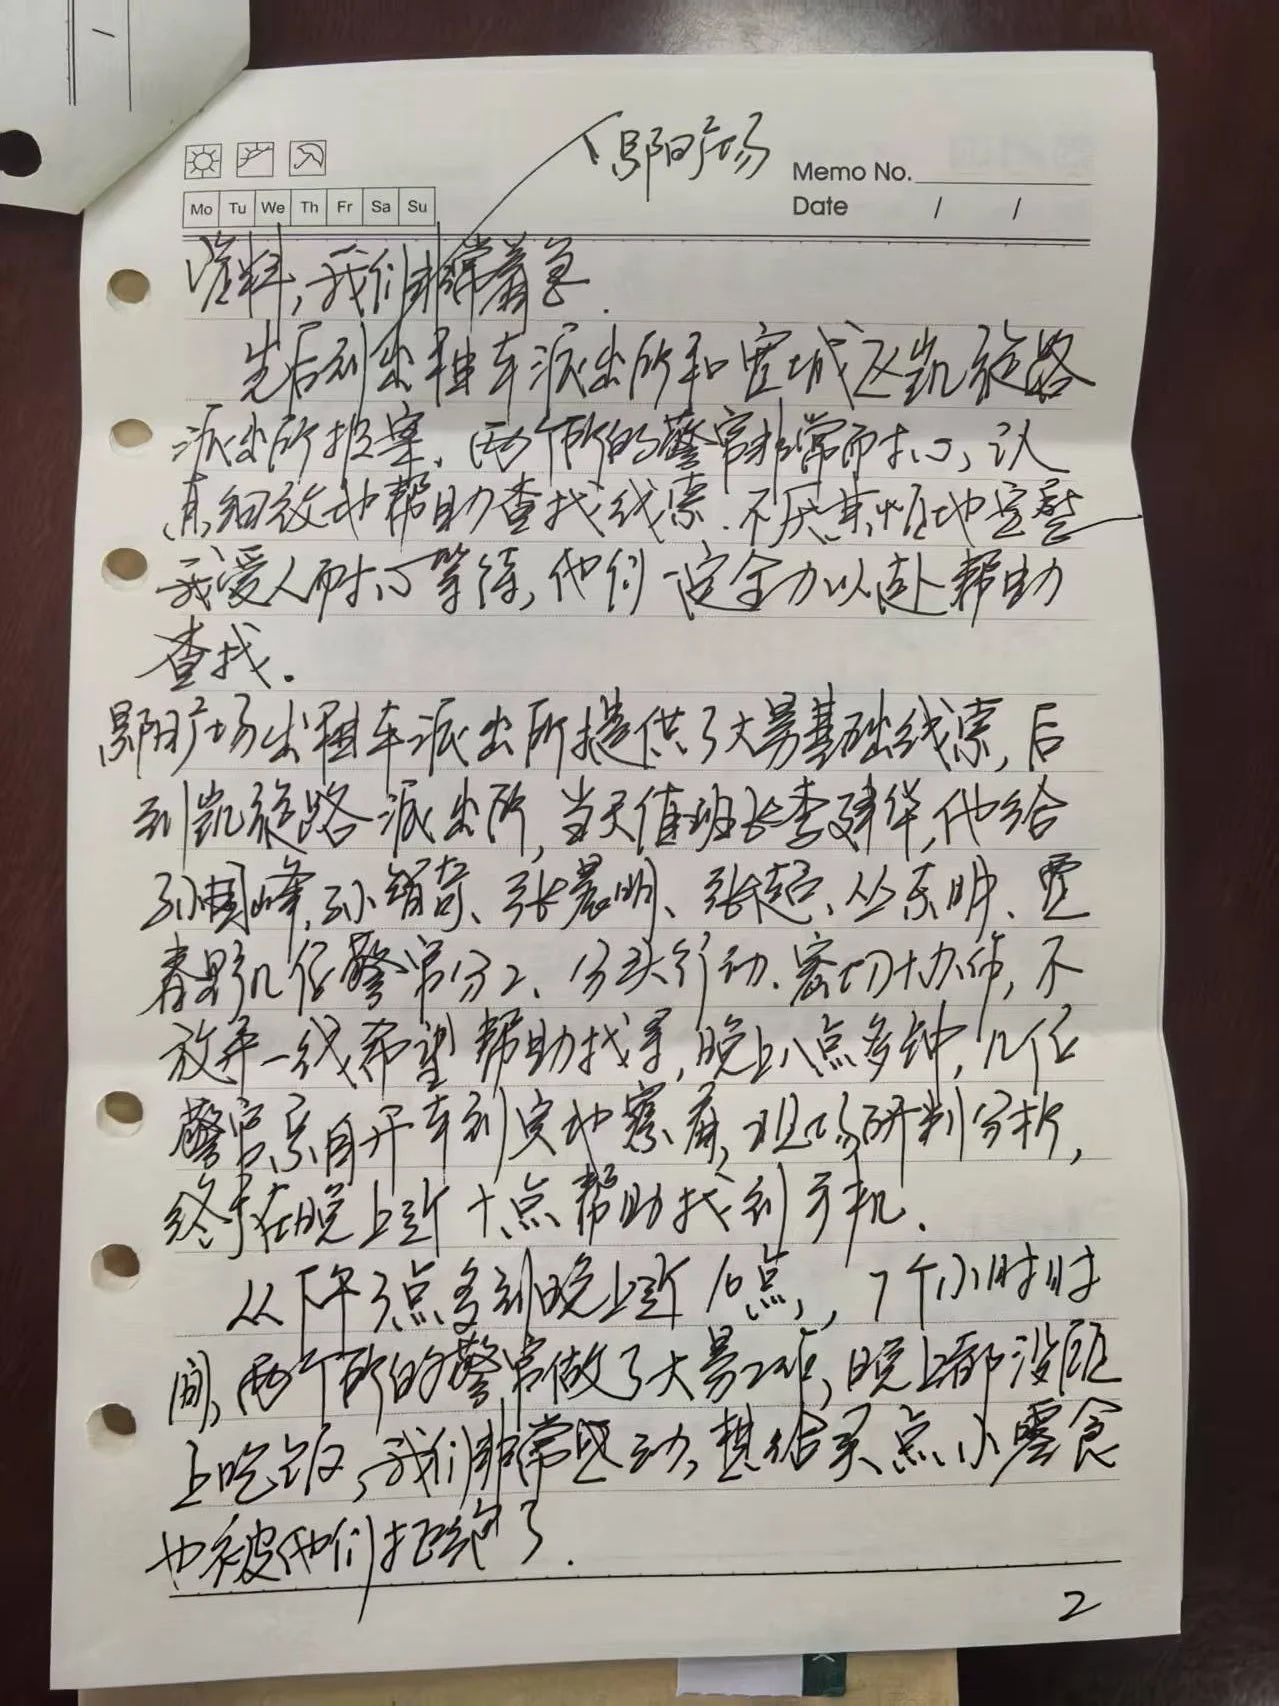 鄖阳广场
Memo No.
Date / /
Mo Tu We Th Fr Sa Su
资料,我们非常着急.
先后到出租车派出所和宽城区凯旋路
派出所报案,两个所的警官非常耐心,认
真细致地帮助查找线索.不厌其烦地安慰
我爱人耐心等待,他们一定全力以赴帮助
查找.
广场出租车派出所提供了大量基础线索,后
到凯旋路派出所,当天值班长李建华,他给
孙国峰、孙 奇、张晨明、张超、丛东明、
春野几位警官分工、分头行动.密切协作,不
放弃一线希望帮助找寻,晚上八点多钟,几位
警官亲自开车到实地察看,现场研判分析,
终于在晚上近十点帮助找到手机.
从下午3点多到晚上近10点,,7个小时时
间,两个所的警官做了大量工作,晚上都没顾
上吃饭,我们非常感动,想给买点小零食
也被他们拒绝了.
2